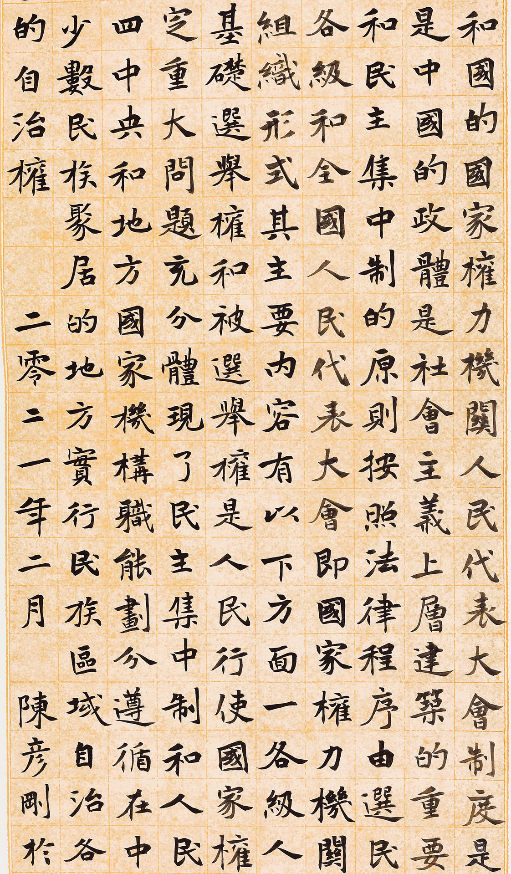 和國的國家權力機關人民代表大會制度是
是中國的政體是社會主義上層建築的重要
和民主集中制的原則按照法律程序由選民
各級和全國人民代表大會即國家權力機關
組織形式其主要內容有以下方面一各級人
基礎選舉權和被選舉權是人民行使國家權
定重大問題充分體現了民主集中制和人民
四中央和地方國家機構職能劃分遵循在中
少數民族聚居的地方實行民族區域自治各
的自治權 二零二一年二月 陳彥剛於